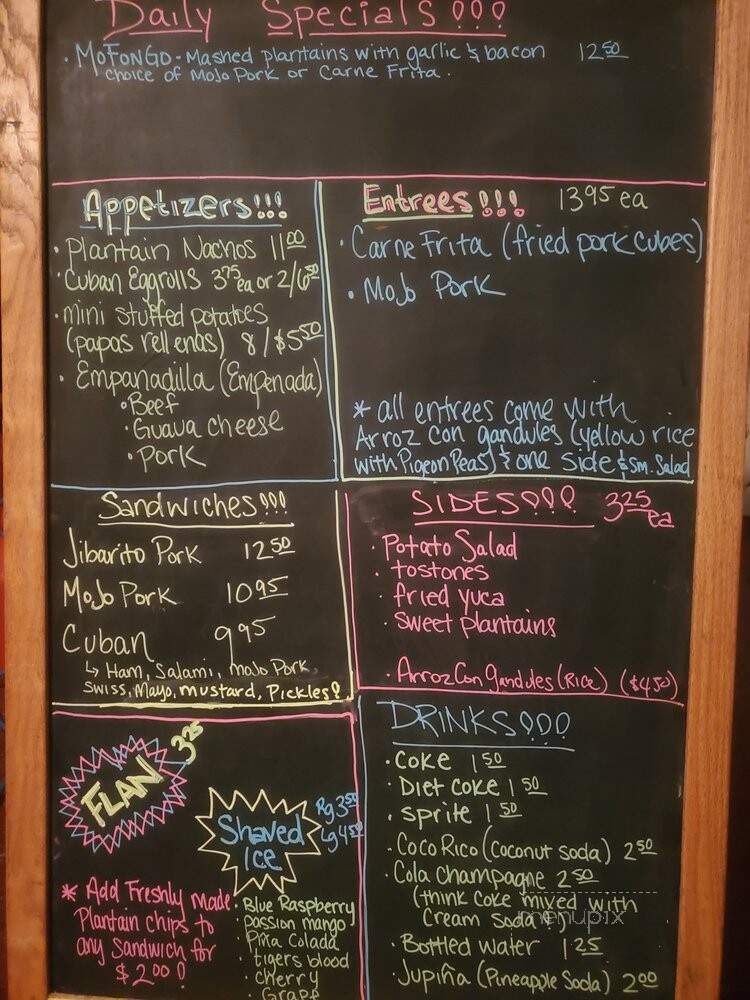 Daily Specials!!!
• MoFonGo - Mashed plantains with garlic & bacon 12.50
choice of Mojo Pork or Carne Frita.
Appetizers!!!
• Plantain Nachos 11.00
• Cuban Eggrolls 3.75 ea or 2/6.50
• mini stuffed potatoes
(papas rellenas) 8/$5.50
• Empanadilla (Empenada)
• Beef
• Guava cheese
• Pork
Entrees!!! 13.95 ea
• Carne Frita (fried pork cubes)
• Mojo Pork
* all entrees come with
Arroz con gandules (yellow rice
with Pigeon Peas) & one side & sm. Salad
Sandwiches!!!
Jibarito Pork 12.50
Mojo Pork 10.95
Cuban 9.95
↳ Ham, Salami, mojo Pork,
Swiss, Mayo, mustard, Pickles!
SIDES!!! 3.25 ea
• Potato Salad
• tostones
• fried yuca
• sweet plantains
• Arroz Con gandules (Rice) ($4.50)
FLAN 3.25
Shaved Ice
Rg 3.50
Lg 4.50
* Add Freshly made
Plantain chips to
any Sandwich for
$2.00!
• Blue Raspberry
• passion mango
• Piña Colada
• tigers blood
• cherry
• Grape
DRINKS!!!
• Coke 1.50
• Diet Coke 1.50
• sprite 1.50
• Coco Rico (coconut soda) 2.50
• Cola champagne 2.50
(think coke mixed with
Cream Soda!)
• Bottled water 1.25
• Jupiña (Pineapple Soda) 2.00
menupix